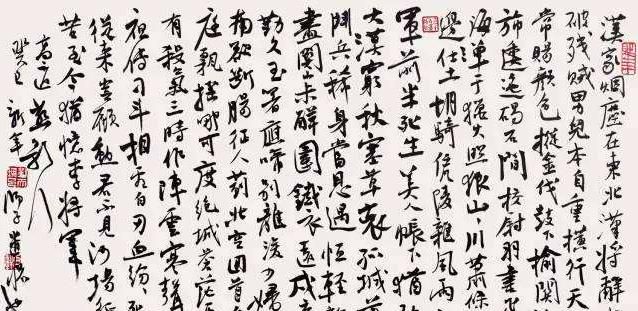 漢家煙塵在東北漢將辭
破殘賊男兒本自重橫行天
常賜顏色摐金伐鼓下榆關
旆逶迤碣石間校尉羽書飛
海單于獵火照狼山川蕭條
邊土胡騎憑陵雜風雨
軍前半死生美人帳下猶歌
大漠窮秋塞草衰孤城落
鬥兵稀身當恩遇恒輕敵
盡關山未解圍鐵衣遠戍辛
勤久玉箸應啼別離後少婦
南欲斷腸征人薊北空回首
庭飄颻那可度絕域蒼茫
有殺氣三時作陣雲寒聲
傳刁斗相看白刃血紛紛死
從來豈顧勳君不見沙場征
苦至今猶憶李將軍
高適燕歌行
癸巳新年